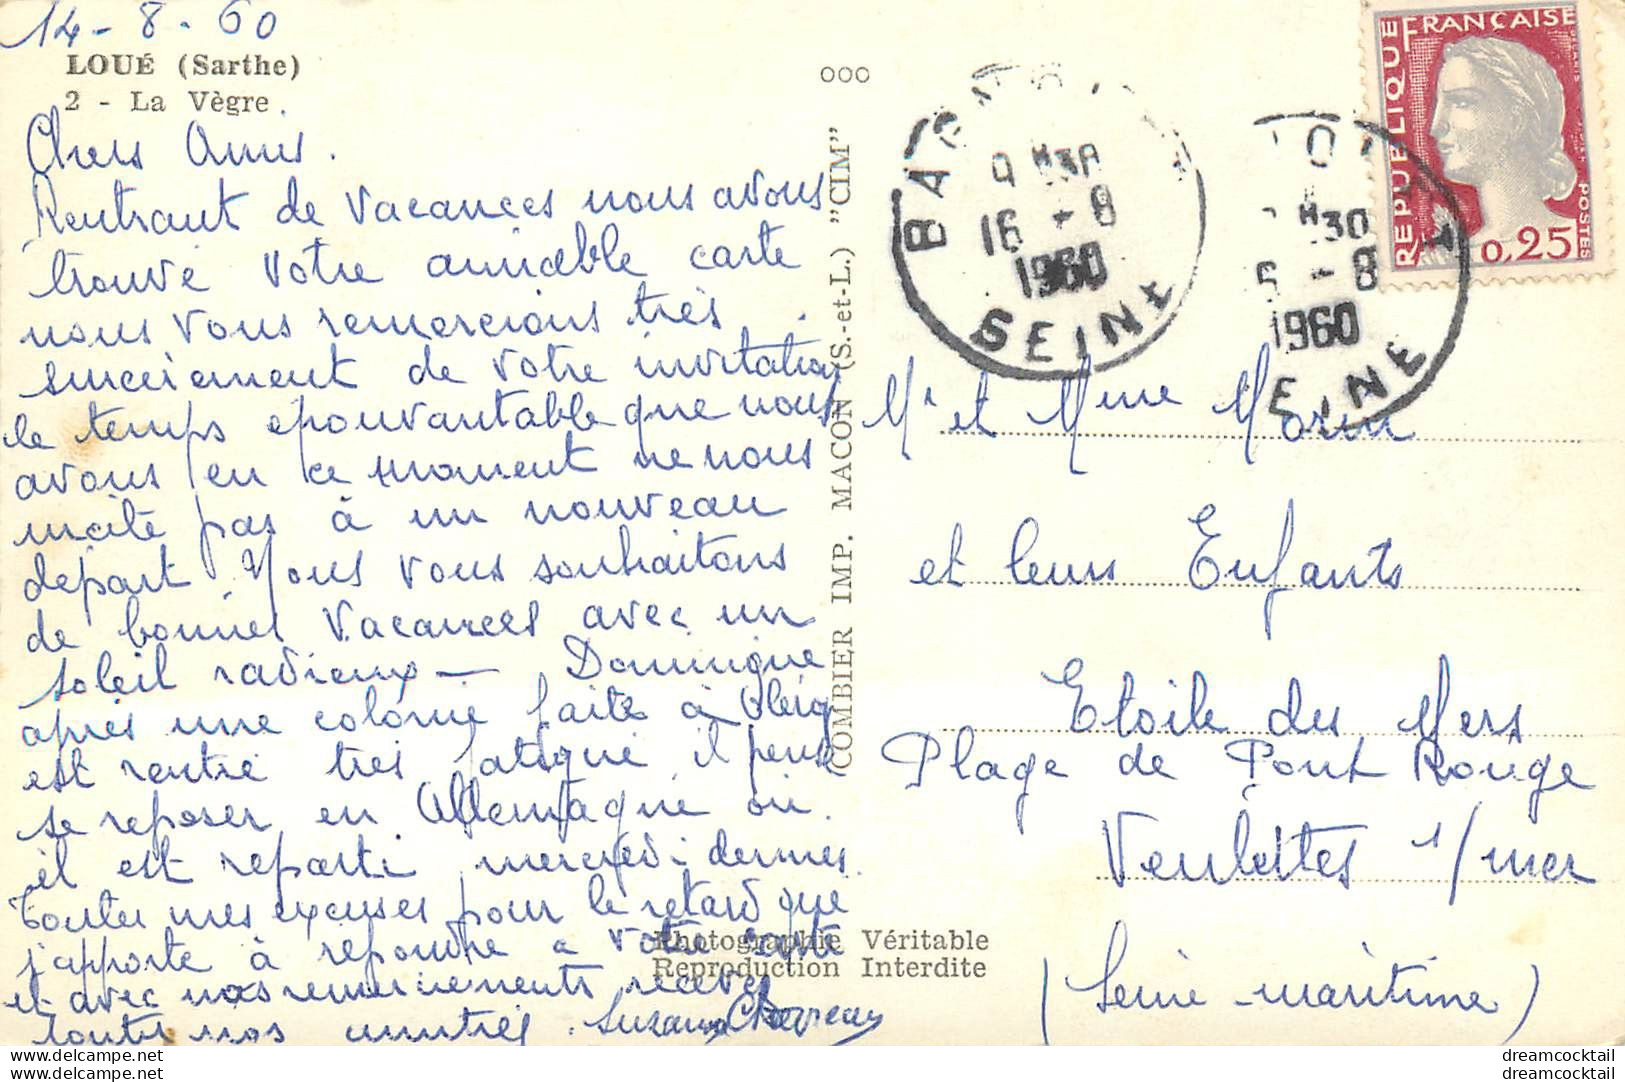 14 - 8 - 60
LOUÉ (Sarthe)
2 - La Vègre.
Chers Amis.
Rentrant de vacances nous avons
trouvé votre aimable carte
nous vous remercions très
sincèrement de votre invitation
le temps epouvantable que nous
avons en ce moment ne nous
incite pas à un nouveau
depart Nous vous souhaitons
de bonnes vacances avec un
soleil radieux — Dominique
après une colonie faite à
est rentré très fatigué il pense
se reposer en Allemagne ou
il est reparti mercredi dernier.
Toutes mes excuses pour le retard que
j'apporte à repondre a votre carte
et avec nos remerciements recevez
toutes nos amitiés. Suzanne
COMBIER IMP. MACON (S.-et-L.) "CIM"
Photographie Véritable
Reproduction Interdite
ooo
9 H30
16 - 8
1960
SEINE
H30
6 - 8
1960
EINE
REPUBLIQUE FRANÇAISE
POSTES
0,25
Mr et Mme Morin
et leurs Enfants
Etoile des Mers
Plage de Pont Rouge
Veulettes s/mer
(Seine-maritime)
dreamcocktail
dreamcocktail
dreamcocktail
dreamcocktail